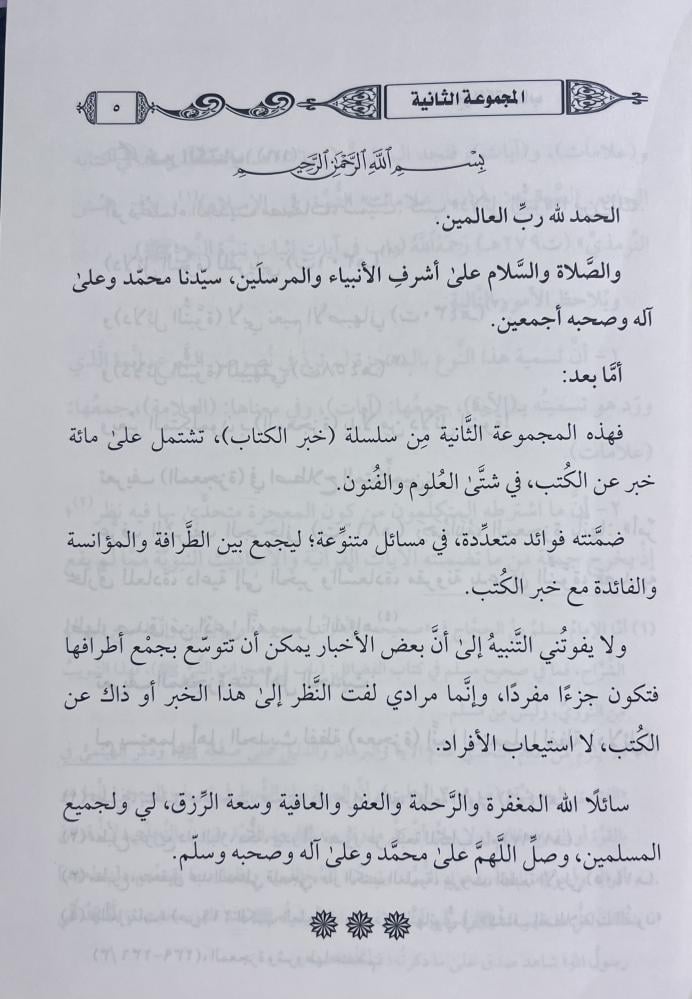 المجموعة الثانية
٥
بِسْمِ اللَّهِ الرَّحْمَٰنِ الرَّحِيمِ
الحمد لله ربِّ العالمين.
والصَّلاة والسَّلام علىٰ أشرفِ الأنبياء والمرسلَين، سيّدنا محمّد وعلىٰ
آله وصحبه أجمعين.
أمَّا بعد:
فهذه المجموعة الثَّانية مِن سلسلة (خبر الكتاب)، تشتمل علىٰ مائة
خبر عن الكُتب، في شتَّىٰ العُلوم والفُنون.
ضمَّنته فوائد متعدِّدة، في مسائل متنوِّعة؛ ليجمع بين الطَّرافة والمؤانسة
والفائدة مع خبر الكُتب.
ولا يفوتُني التَّنبيهُ إلىٰ أنَّ بعض الأخبار يمكن أن تتوسّع بجمْع أطرافها
فتكون جزءًا مفردًا، وإنَّما مرادي لفت النَّظر إلىٰ هذا الخبر أو ذاك عن
الكُتب، لا استيعاب الأفراد.
سائلًا الله المغفرة والرَّحمة والعفو والعافية وسعة الرِّزق، لي ولجميع
المسلمين، وصلِّ اللَّهمَّ علىٰ محمَّد وعلىٰ آله وصحبه وسلّم.